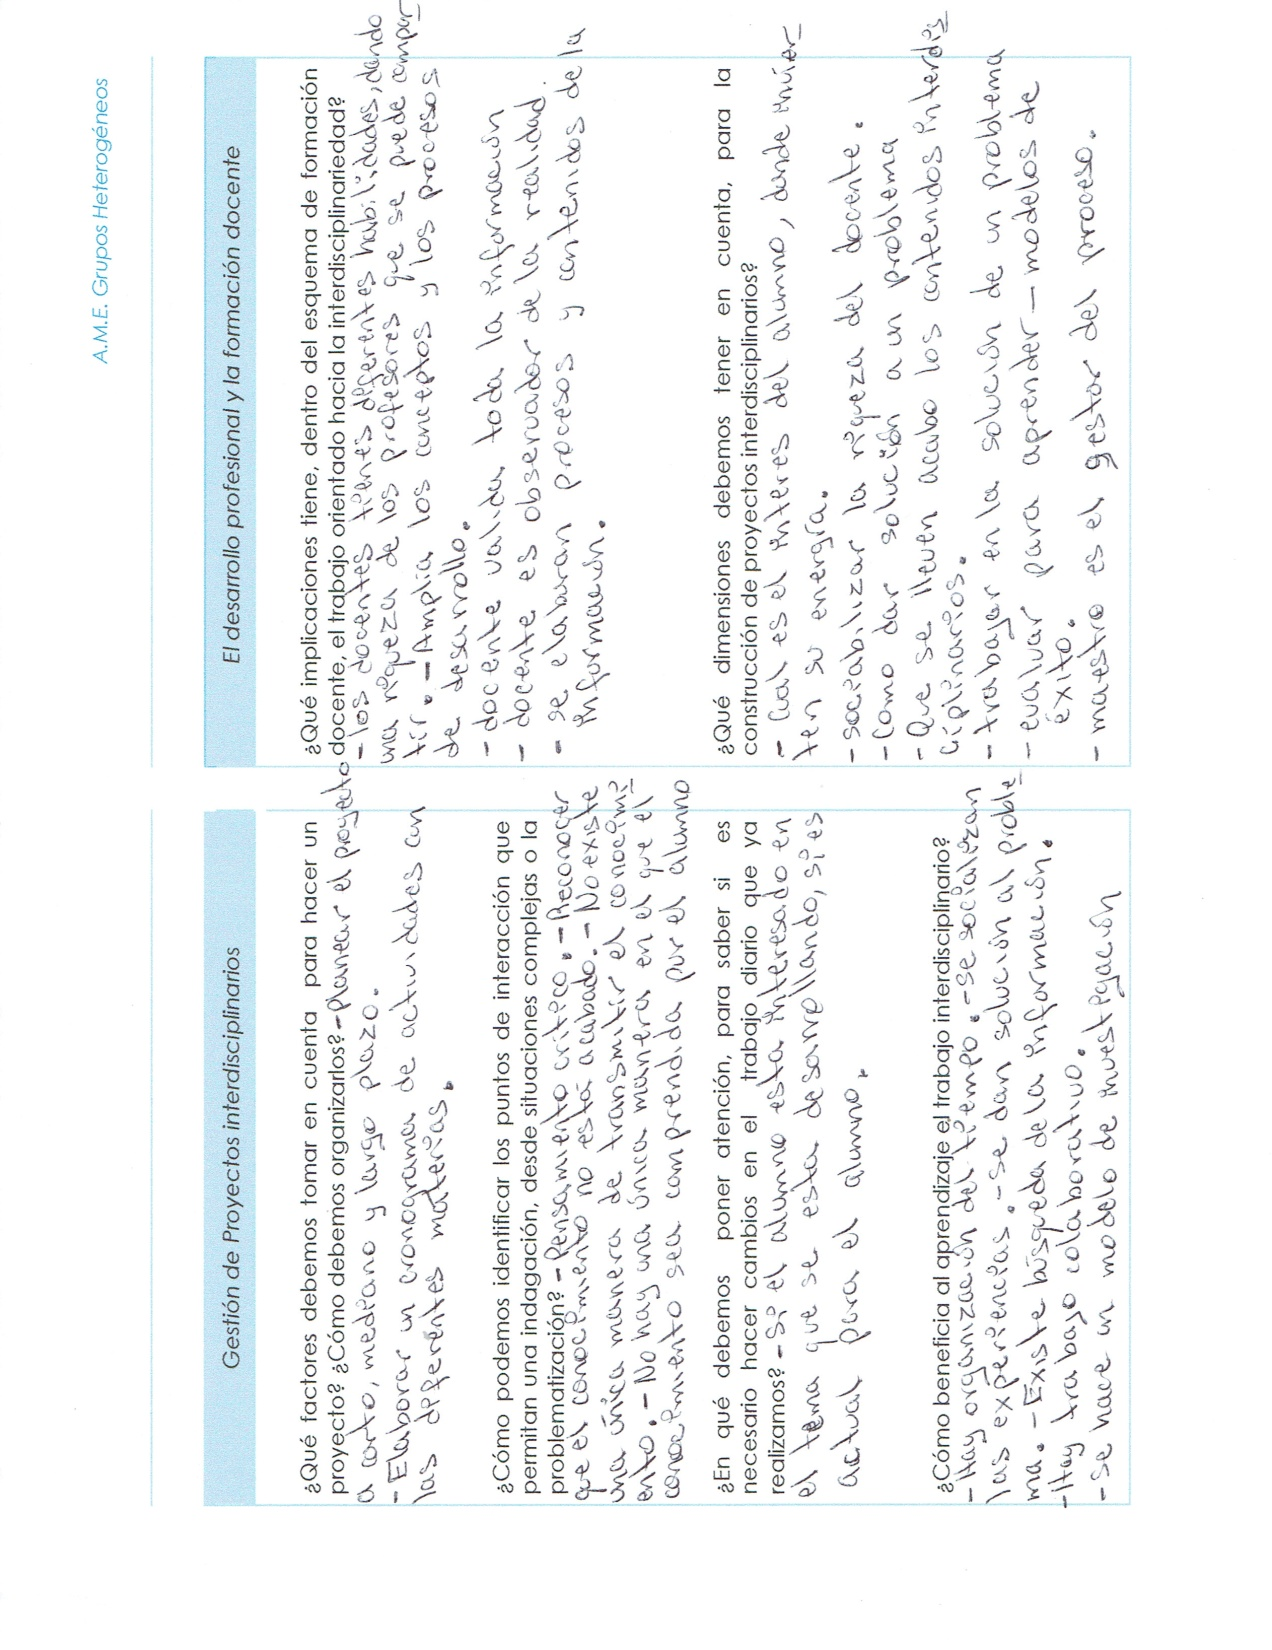 A.M.E. Grupos Heterogéneos
Gestión de Proyectos interdisciplinarios
¿Qué factores debemos tomar en cuenta para hacer un
proyecto? ¿Cómo debemos organizarlos? - Planear el proyecto
a corto, mediano y largo plazo.
- Elaborar un cronograma de actividades con
las diferentes materias.
¿Cómo podemos identificar los puntos de interacción que
permitan una indagación, desde situaciones complejas o la
problematización? - Pensamiento crítico. - Reconocer
que el conocimiento no está acabado. - No existe
una única manera de transmitir el conocimi
ento. - No hay una única manera en el que el
conocimiento sea comprendida por el alumno
¿En qué debemos poner atención, para saber si es
necesario hacer cambios en el trabajo diario que ya
realizamos? - Si el alumno esta interesado en
el tema que se esta desarrollando, si es
actual para el alumno.
¿Cómo beneficia al aprendizaje el trabajo interdisciplinario?
- Hay organización del tiempo. - se socializan
las experiencias. - se dan solución al proble
ma. - Existe búsqueda de la información.
- Hay trabajo colaborativo.
- se hace un modelo de investigación
El desarrollo profesional y la formación docente
¿Qué implicaciones tiene, dentro del esquema de formación
docente, el trabajo orientado hacia la interdisciplinariedad?
- los docentes tienes diferentes habilidades, dando
una riqueza de los profesores que se puede compar
tir. - Amplia los conceptos y los procesos
de desarrollo.
- docente valida toda la información
- docente es observador de la realidad.
- se elaboran procesos y contenidos de la
información.
¿Qué dimensiones debemos tener en cuenta, para la
construcción de proyectos interdisciplinarios?
- Cual es el interes del alumno, donde invier
ten su energía.
- sociabilizar la riqueza del docente.
- Como dar solución a un problema
- Que se lleven acabo los contenidos interdis
ciplinarios.
- trabajar en la solución de un problema
- evaluar para aprender - modelos de
éxito.
- maestro es el gestor del proceso.